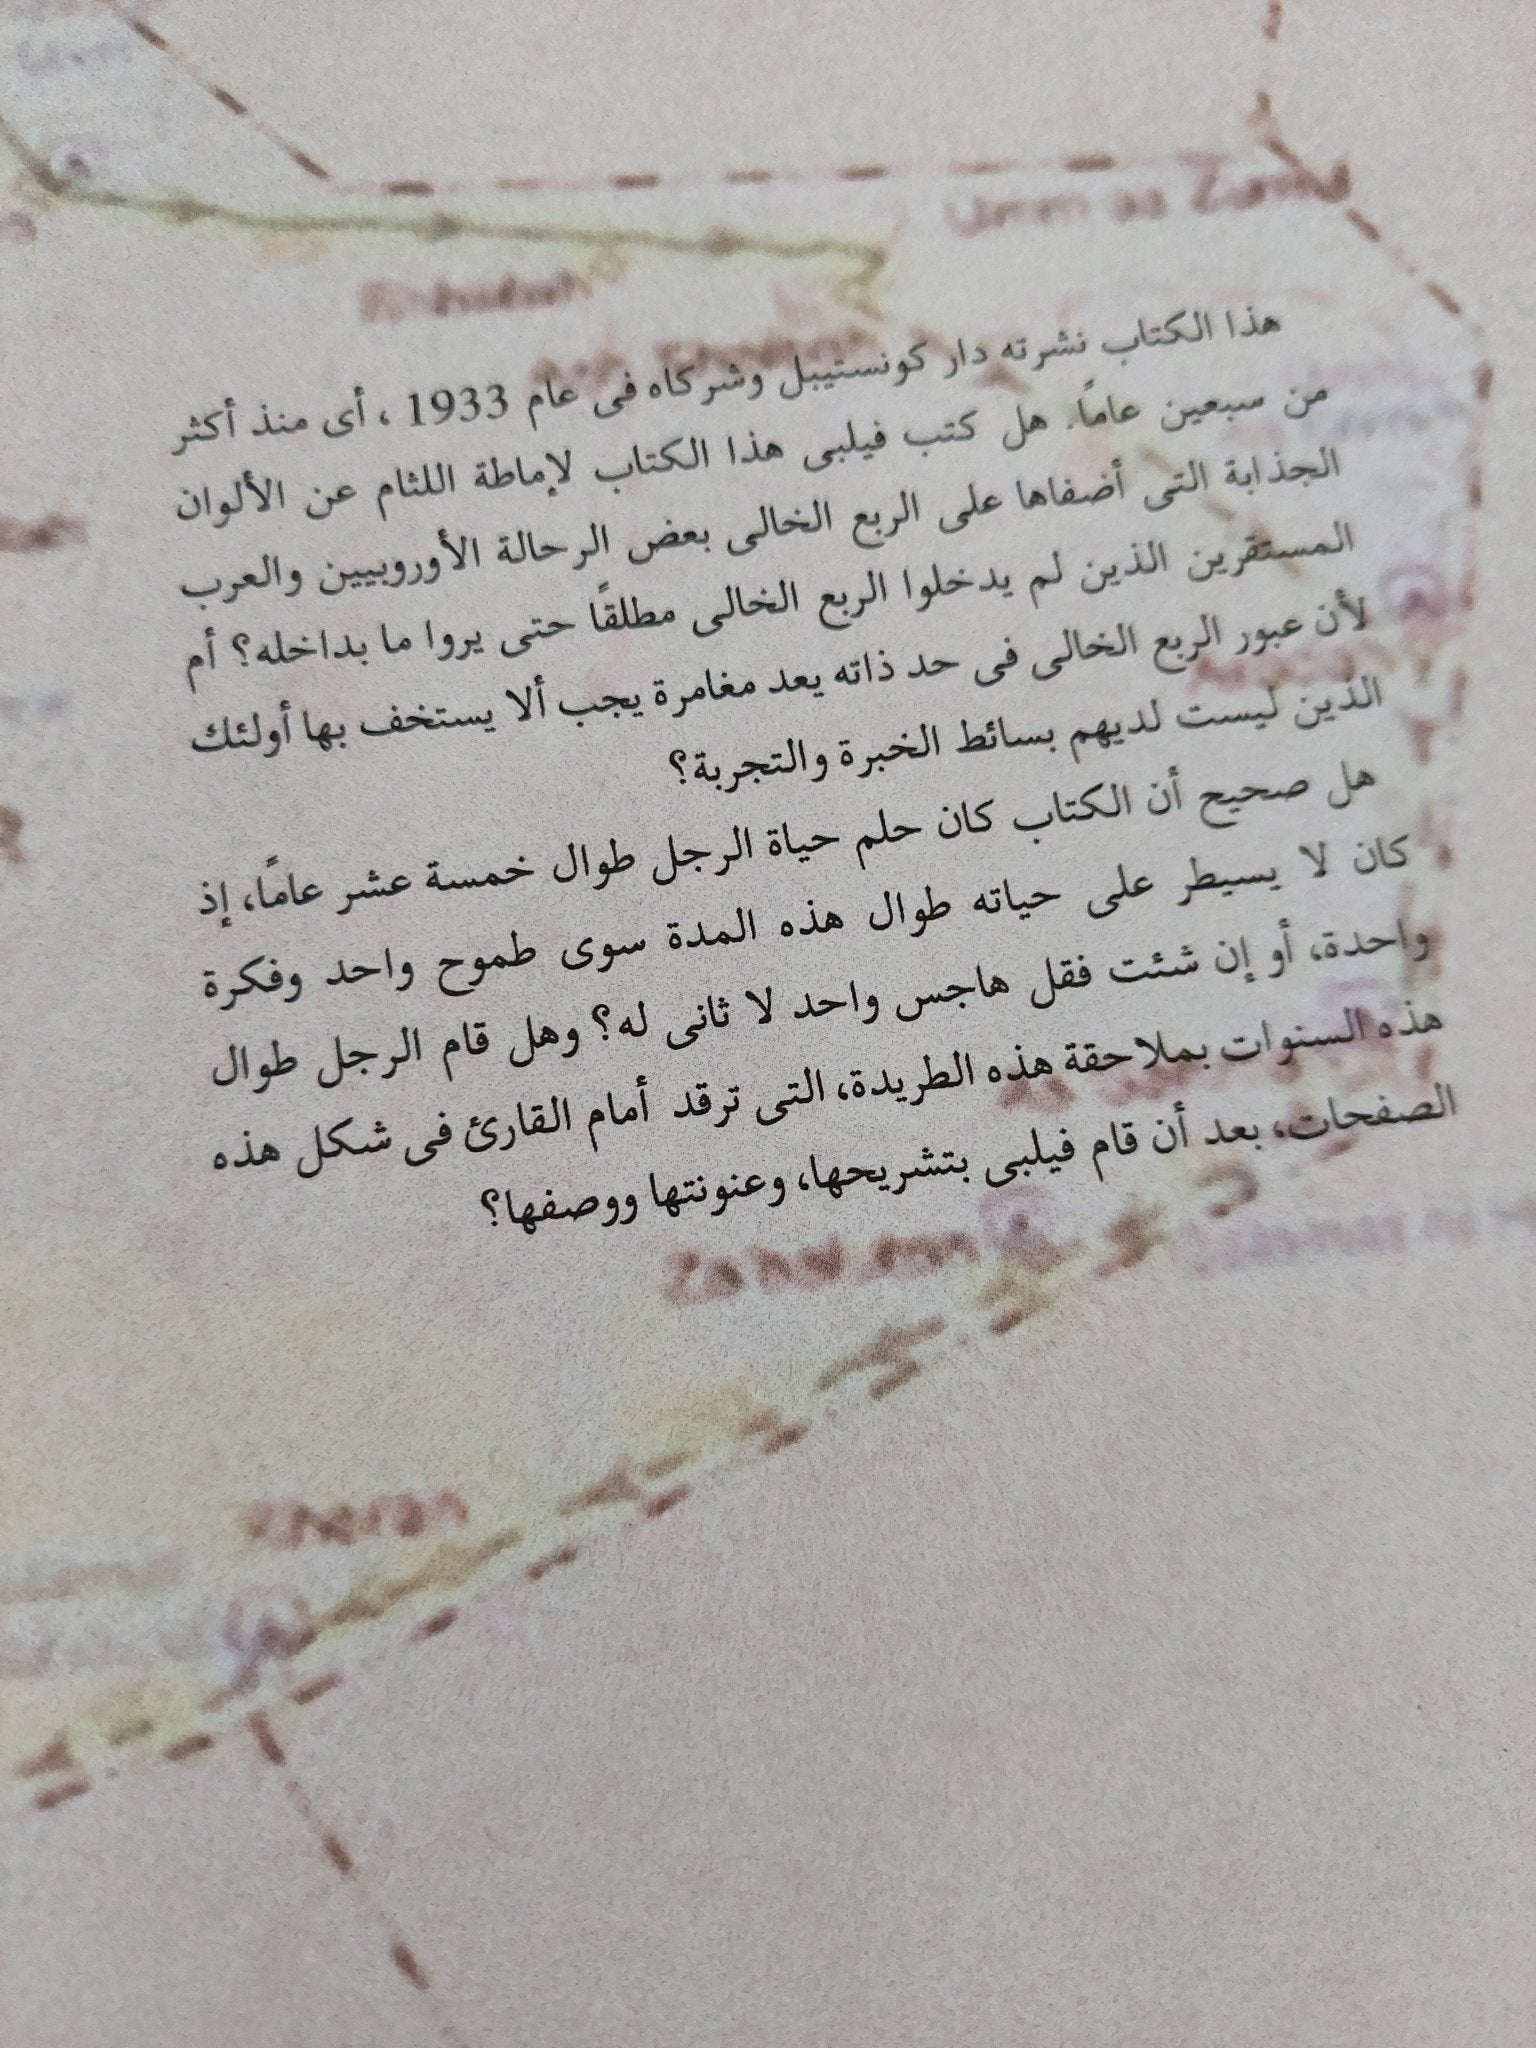 هذا الكتاب نشرته دار كونستيبل وشركاه فى عام 1933 ، أى منذ أكثر
من سبعين عامًا. هل كتب فيلبى هذا الكتاب لإماطة اللثام عن الألوان
الجذابة التى أضفاها على الربع الخالى بعض الرحالة الأوروبيين والعرب
المستقرين الذين لم يدخلوا الربع الخالى مطلقًا حتى يروا ما بداخله؟ أم
لأن عبور الربع الخالى فى حد ذاته يعد مغامرة يجب ألا يستخف بها أولئك
الذين ليست لديهم بسائط الخبرة والتجربة؟
هل صحيح أن الكتاب كان حلم حياة الرجل طوال خمسة عشر عامًا، إذ
كان لا يسيطر على حياته طوال هذه المدة سوى طموح واحد وفكرة
واحدة، أو إن شئت فقل هاجس واحد لا ثانى له؟ وهل قام الرجل طوال
هذه السنوات بملاحقة هذه الطريدة، التى ترقد أمام القارئ فى شكل هذه
الصفحات، بعد أن قام فيلبى بتشريحها، وعنونتها ووصفها؟